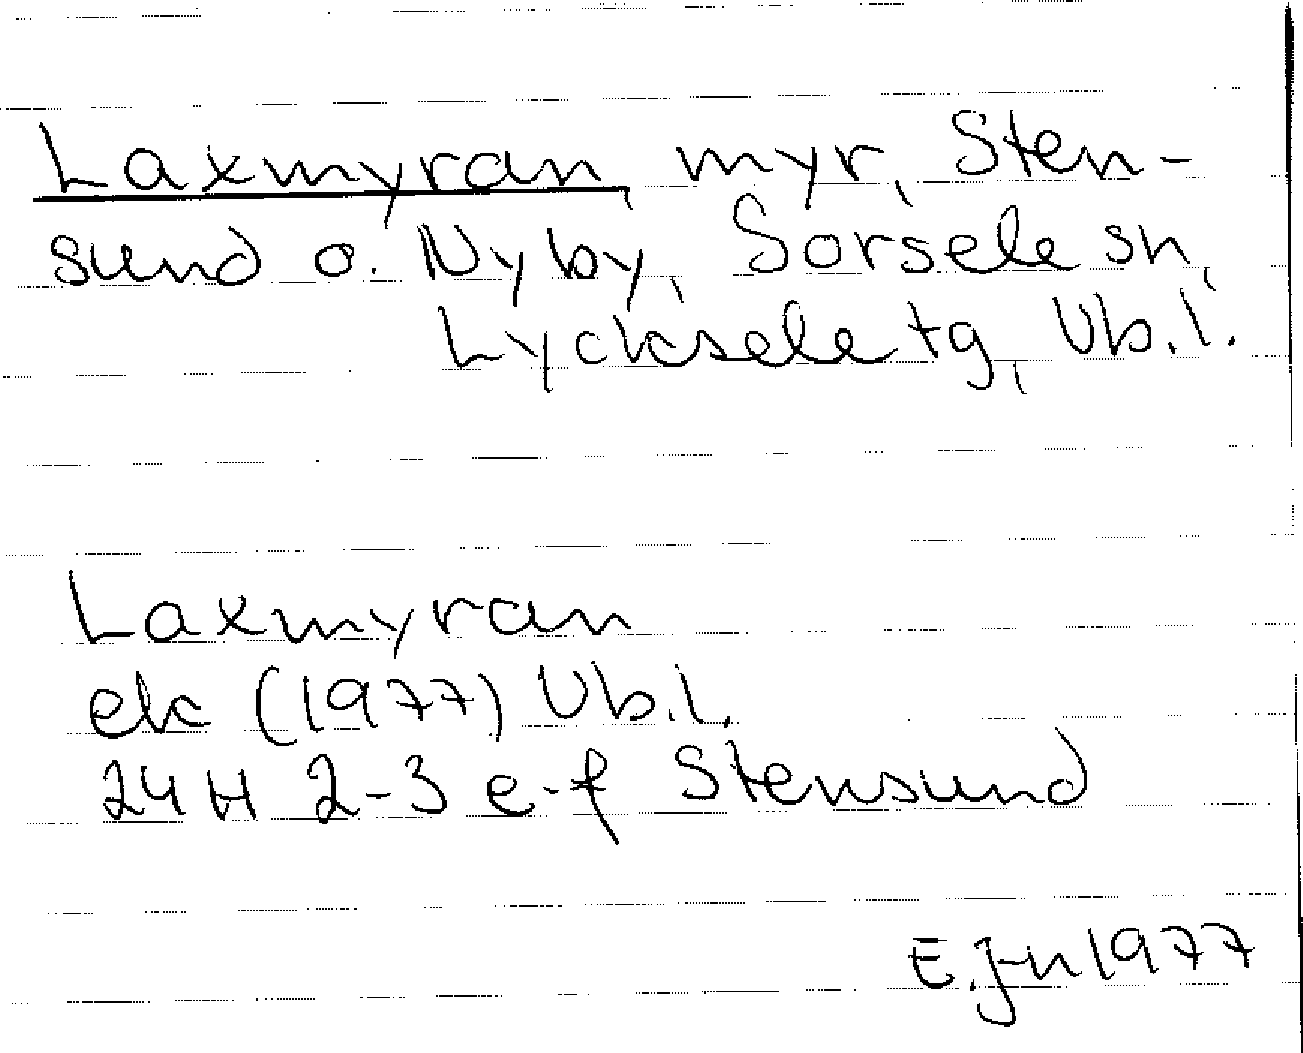 Laxmyran, myr, Sten-
sund o. Nyby, Sorsele sn,
Lycksele tg, Vb.l.
Laxmyran
ek (1977) Vb.l.
24H 2-3 e-f Stensund
E.J-n 1977